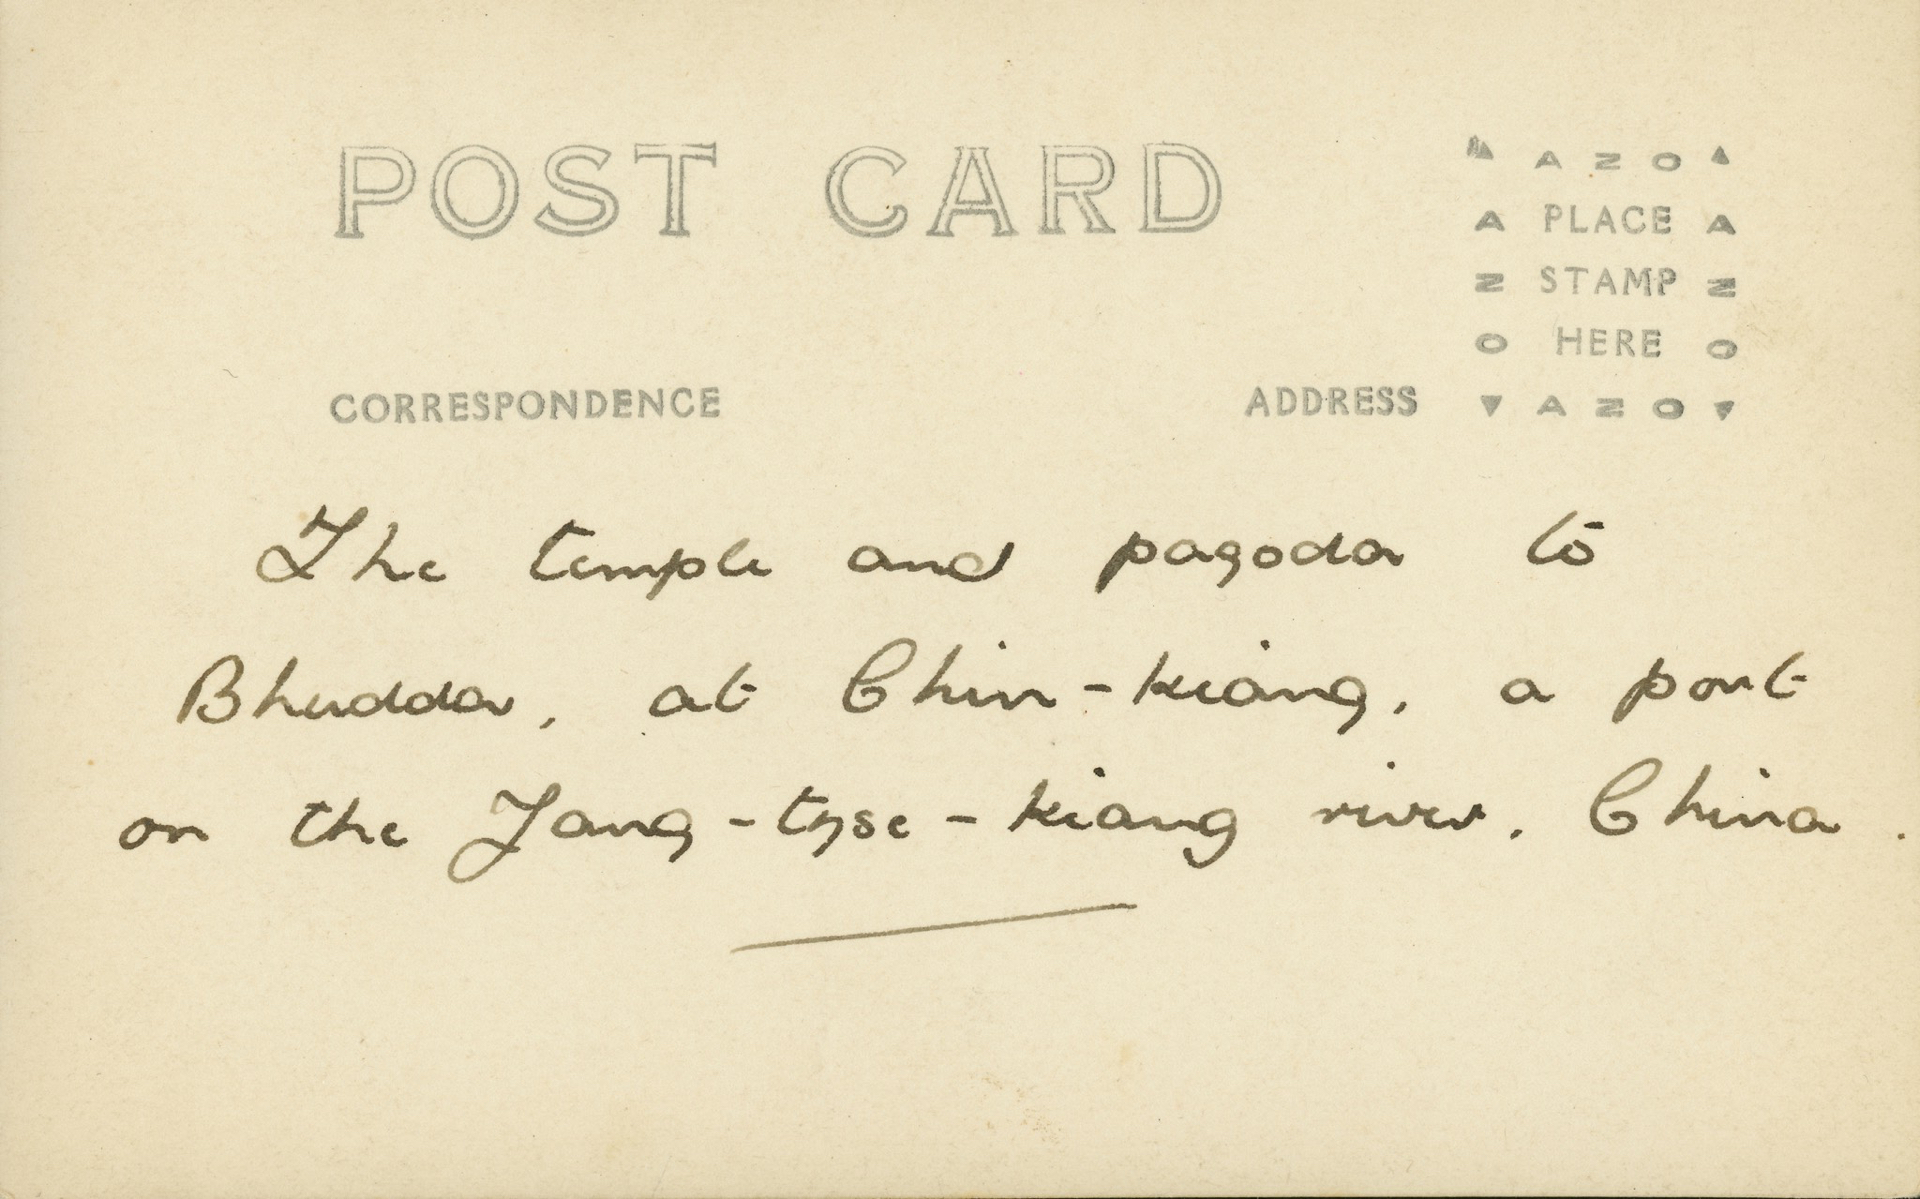 POST CARD
▲ AZO ▲
A PLACE A
Z STAMP Z
O HERE O
▼ AZO ▼
CORRESPONDENCE
ADDRESS
The temple and pagoda to
Bhudda, at Chin-kiang, a port
on the Yang-tyse-kiang river, China.